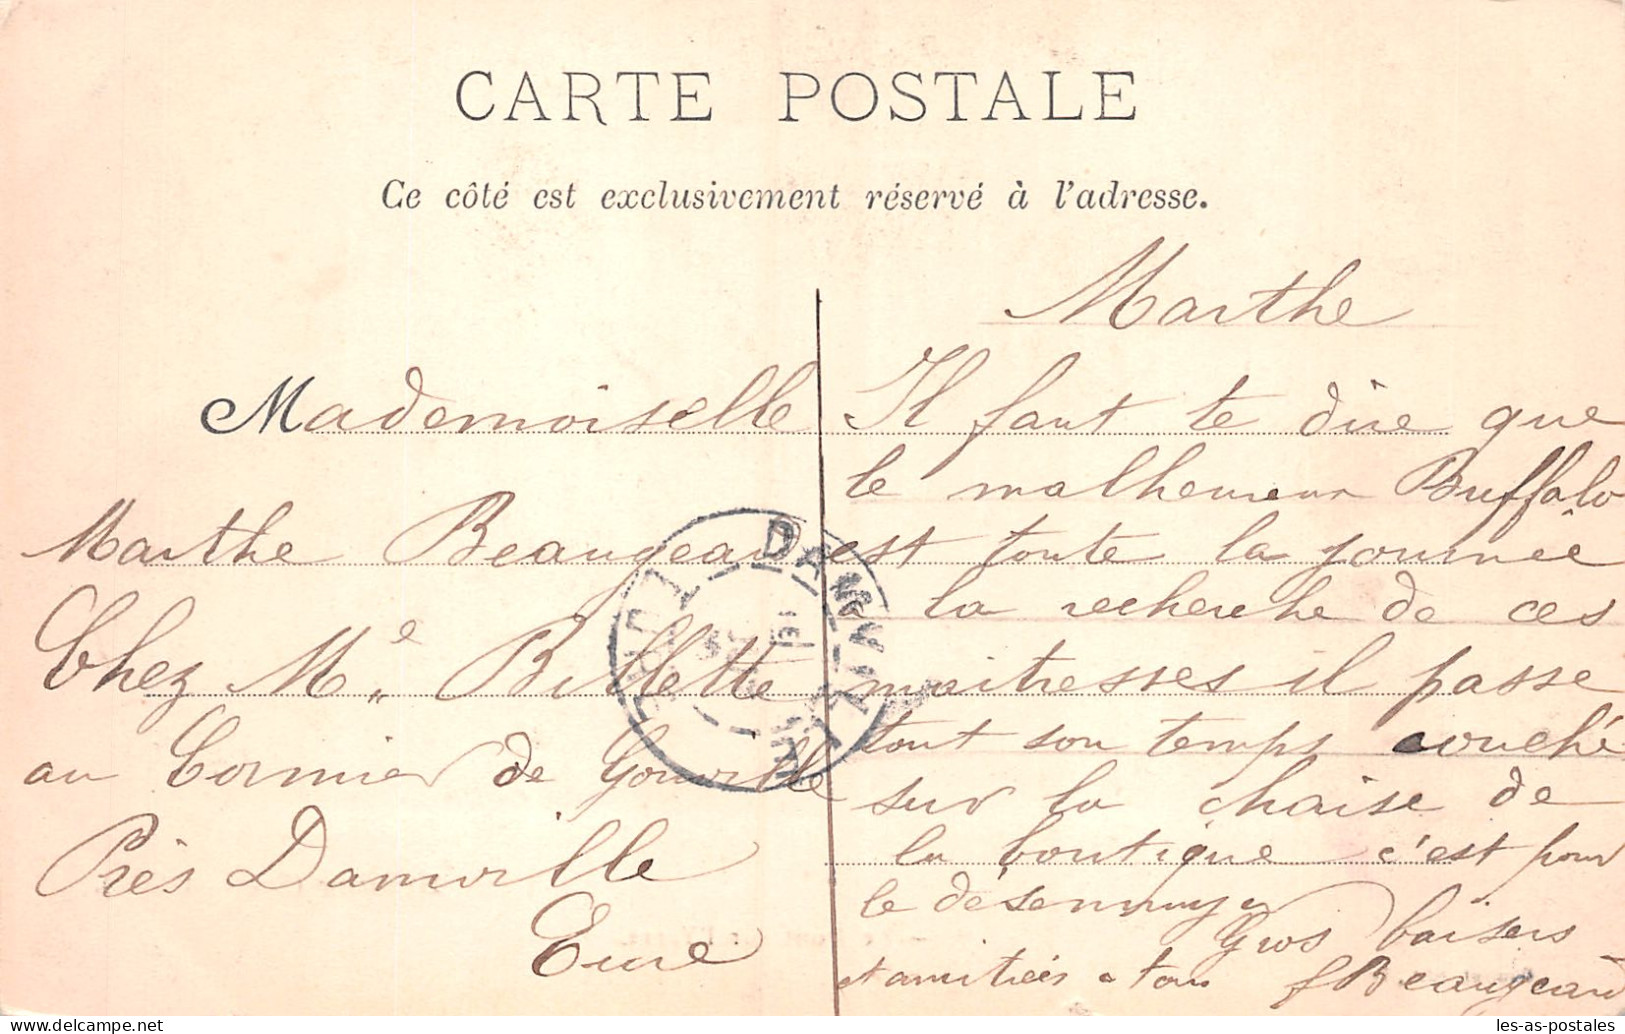 CARTE POSTALE
Ce côté est exclusivement réservé à l'adresse.
Mademoiselle
Marthe Beaugeard
Chez Me Billette
au Cormier de Gouville
Près Damville
Eure
DAMVILLE
EURE
Marthe
Il faut te dire que
le malheureux Buffalo
est toute la journée
a la recherche de ces
maitresses il passe
tout son temps couché
sur la chaise de
la boutique c'est pour
le désennuyer
Gros baisers
et amitiés a tous
Beaugeard
les-as-postales